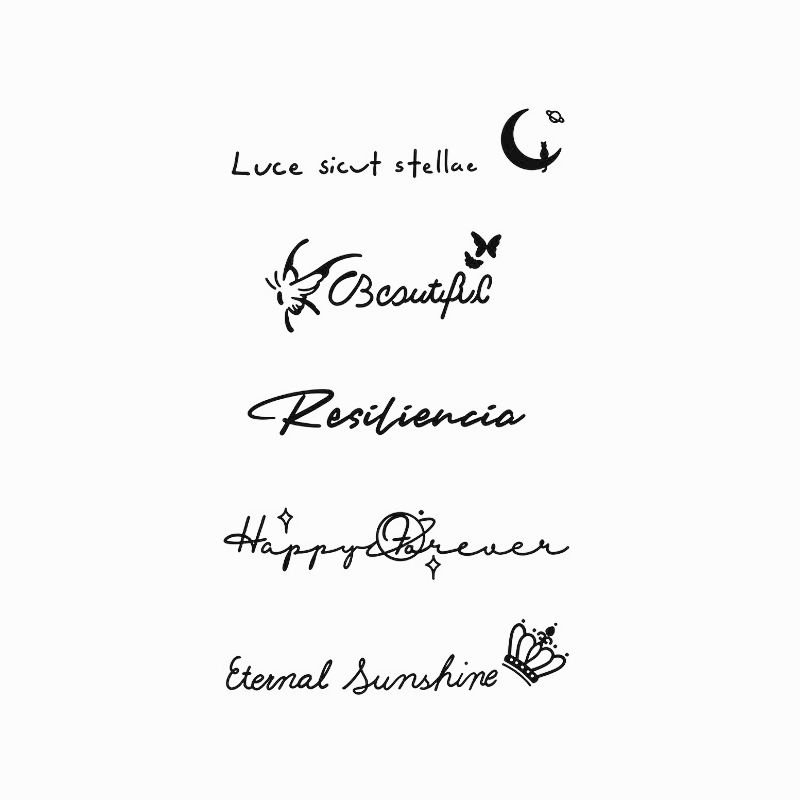 Luce sicut stellae
Beautiful
Resiliencia
Happy Forever
Eternal Sunshine